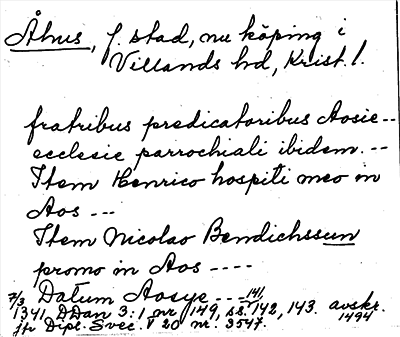 Åhus, f. stad, nu köping i
Villands hd, Krist. l.
fratribus predicatoribus Aosie --
ecclesie parrochiali ibidem. --
Item Henrico hospiti meo in
Aos ---
Item Nicolao Bendichssun
promo in Aos ----
Datum Aosye ---
7/3 1341, DDan 3:1 nr 149, ss. 141, 142, 143. avskr. 1494
jfr Dipl. Svec. V 20 nr. 3547.